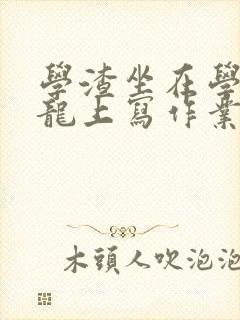 學渣坐在學
龍上寫作業
木頭人吹泡泡